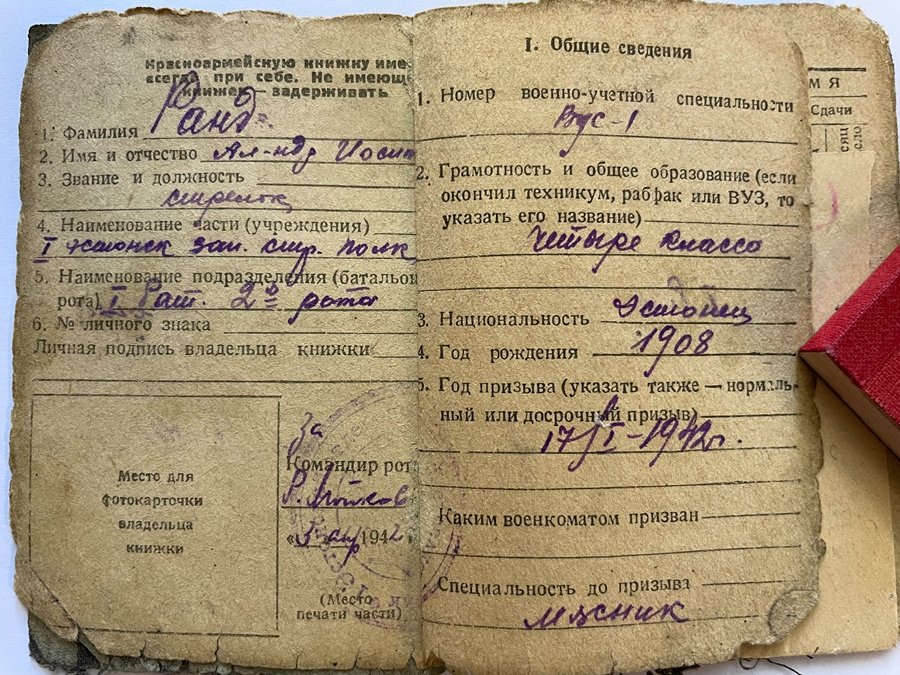 Красноармейскую книжку име
всегда при себе. Не имеющ
книжек — задерживать
1. Фамилия Ранд
2. Имя и отчество Ал-ндр Иосип
3. Звание и должность
стрелок
4. Наименование части (учреждения)
I эстонск зап. стр. полк
5. Наименование подразделения (батальон
рота) I бат. 2ая рота
6. № личного знака
Личная подпись владельца книжки
Место для
фотокарточки
владельца
книжки
За
Командир рот
«5» апр 1942
(Место
печати части)
I. Общие сведения
1. Номер военно-учетной специальности
Вус-1
2. Грамотность и общее образование (если
окончил техникум, рабфак или ВУЗ, то
указать его название)
Четыре классо
3. Национальность Эстонец
4. Год рождения 1908
5. Год призыва (указать также — нормаль-
ный или досрочный призыв)
17/I-1942г.
Каким военкоматом призван
Специальность до призыва
мясник
МЯ
Сдачи